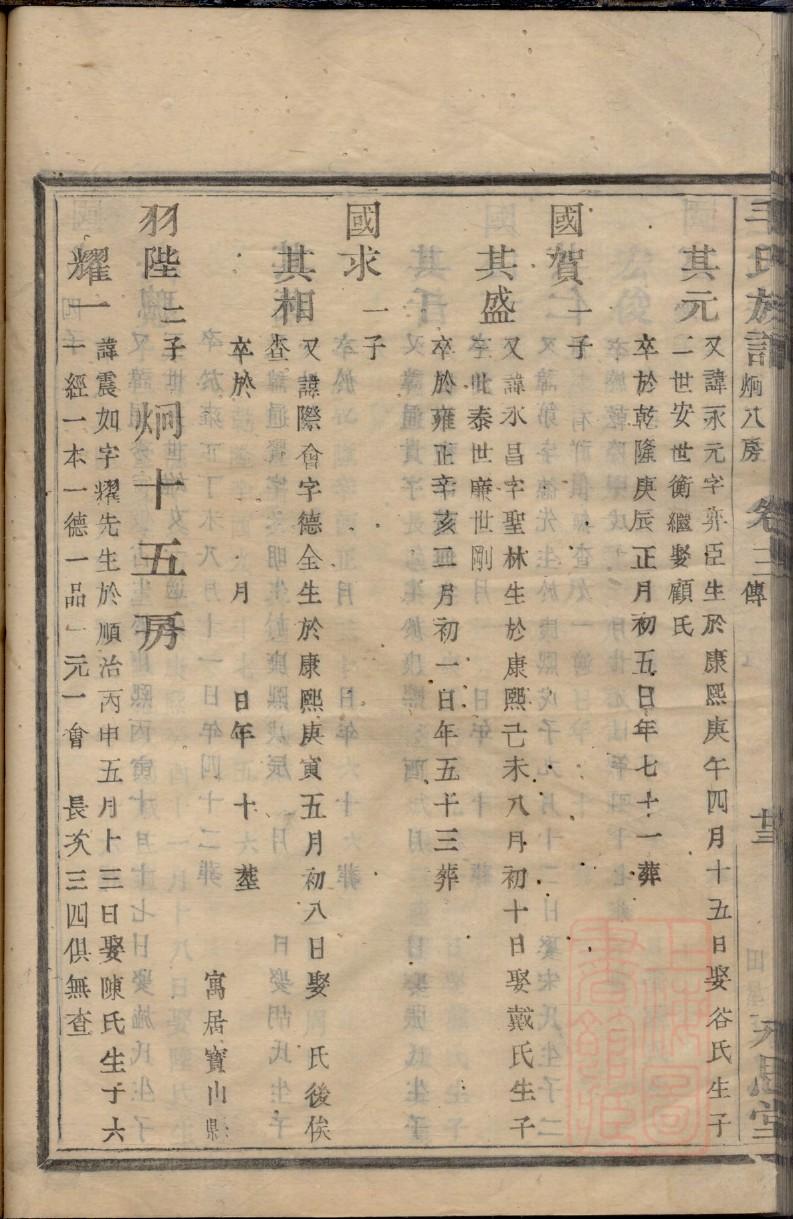 王氏族譜 炯八房 卷三傳 廿三
其元 又諱永元字弈臣生於康熙庚午四月十五日娶谷氏生子
二世安世衡繼娶顧氏
卒於乾隆庚辰正月初五日年七十一葬
國賀 一子
其盛 又諱永昌字聖林生於康熙己未八月初十日娶戴氏生子
三世泰世廉世剛
卒於雍正辛亥正月初一日年五十三葬
國求 一子
其相 又諱際會字德全生於康熙庚寅五月初八日娶 氏後俟
查
卒於 年 月 日年 十 塟
寓居寶山縣
羽陛 二子 炯十五房
耀一 諱震如字耀先生於順治丙申五月十三日娶陳氏生子六
一經一本一德一品一元一會 長次三四俱無查